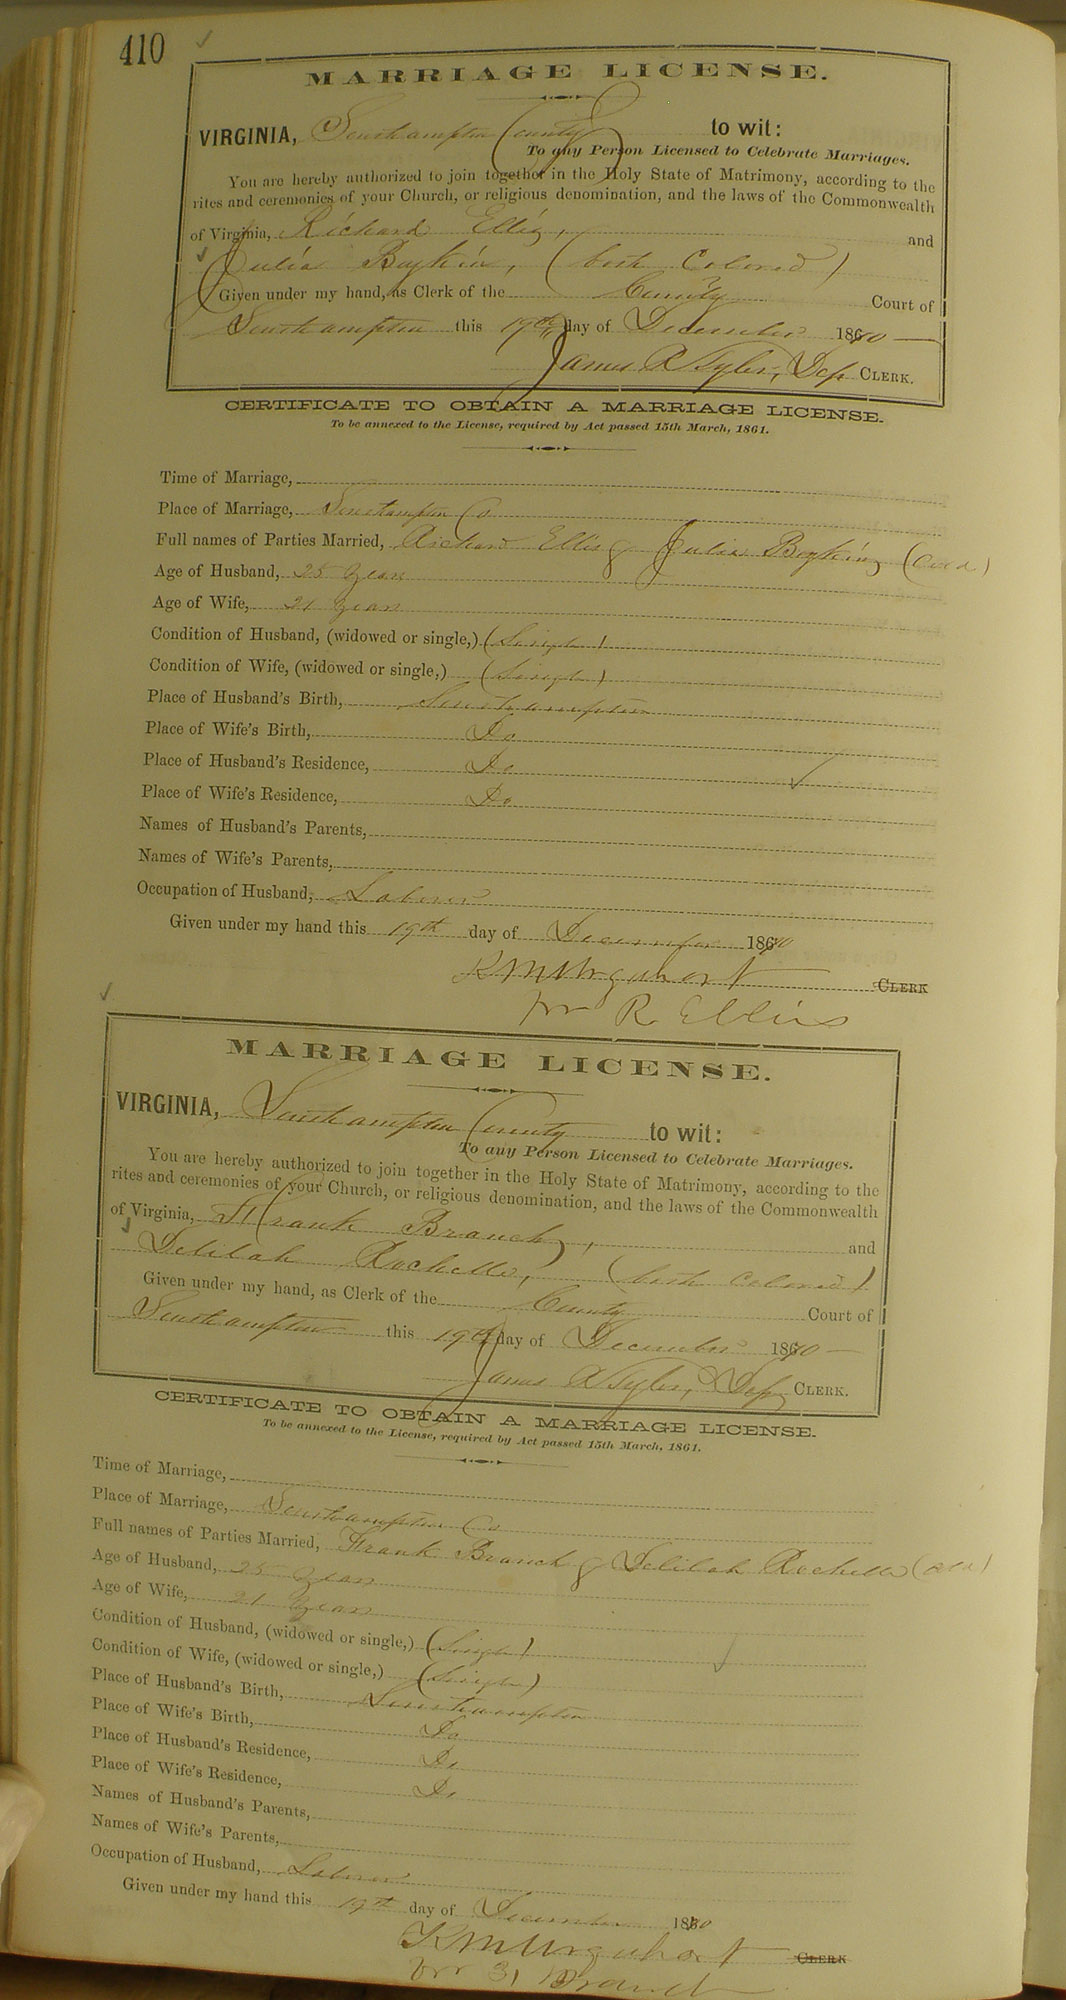 410
MARRIAGE LICENSE.
VIRGINIA, Southampton County to wit:
To any Person Licensed to Celebrate Marriages.
You are hereby authorized to join together in the Holy State of Matrimony, according to the
rites and ceremonies of your Church, or religious denomination, and the laws of the Commonwealth
of Virginia, Richard Ellis, and
Julia Boykin, (both Colored)
Given under my hand, as Clerk of the County Court of
Southampton this 19th day of December 1870
James R Tyler, Dep CLERK.
CERTIFICATE TO OBTAIN A MARRIAGE LICENSE.
To be annexed to the License, required by Act passed 15th March, 1861.
Time of Marriage,
Place of Marriage, Southampton Co
Full names of Parties Married, Richard Ellis & Julia Boykin (Cold)
Age of Husband, 25 Years
Age of Wife, 21 Years
Condition of Husband, (widowed or single,) (Single)
Condition of Wife, (widowed or single,) (Single)
Place of Husband's Birth, Southampton
Place of Wife's Birth, Do
Place of Husband's Residence, Do
Place of Wife's Residence, Do
Names of Husband's Parents,
Names of Wife's Parents,
Occupation of Husband, Laborer
Given under my hand this 19th day of December 1870
K M Urquhart CLERK
for R. Ellis
MARRIAGE LICENSE.
VIRGINIA, Southampton County to wit:
To any Person Licensed to Celebrate Marriages.
You are hereby authorized to join together in the Holy State of Matrimony, according to the
rites and ceremonies of your Church, or religious denomination, and the laws of the Commonwealth
of Virginia, Frank Branch, and
Delilah Rochelle, (both Colored)
Given under my hand, as Clerk of the County Court of
Southampton this 19th day of December 1870
James R Tyler, Dep CLERK.
CERTIFICATE TO OBTAIN A MARRIAGE LICENSE.
To be annexed to the License, required by Act passed 15th March, 1861.
Time of Marriage,
Place of Marriage, Southampton Co
Full names of Parties Married, Frank Branch & Delilah Rochelle (Cold)
Age of Husband, 25 Years
Age of Wife, 21 Years
Condition of Husband, (widowed or single,) (Single)
Condition of Wife, (widowed or single,) (Single)
Place of Husband's Birth, Southampton
Place of Wife's Birth, Do
Place of Husband's Residence, Do
Place of Wife's Residence, Do
Names of Husband's Parents,
Names of Wife's Parents,
Occupation of Husband, Laborer
Given under my hand this 19th day of December 1870
K M Urquhart CLERK
for Branch